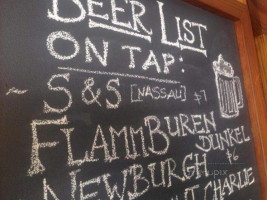 BEER LIST
ON TAP:
~ S&S [NASSAU] $7
FLAMMBUREN
DUNKEL
$6
NEWBURGH
CHARLIE
.pix